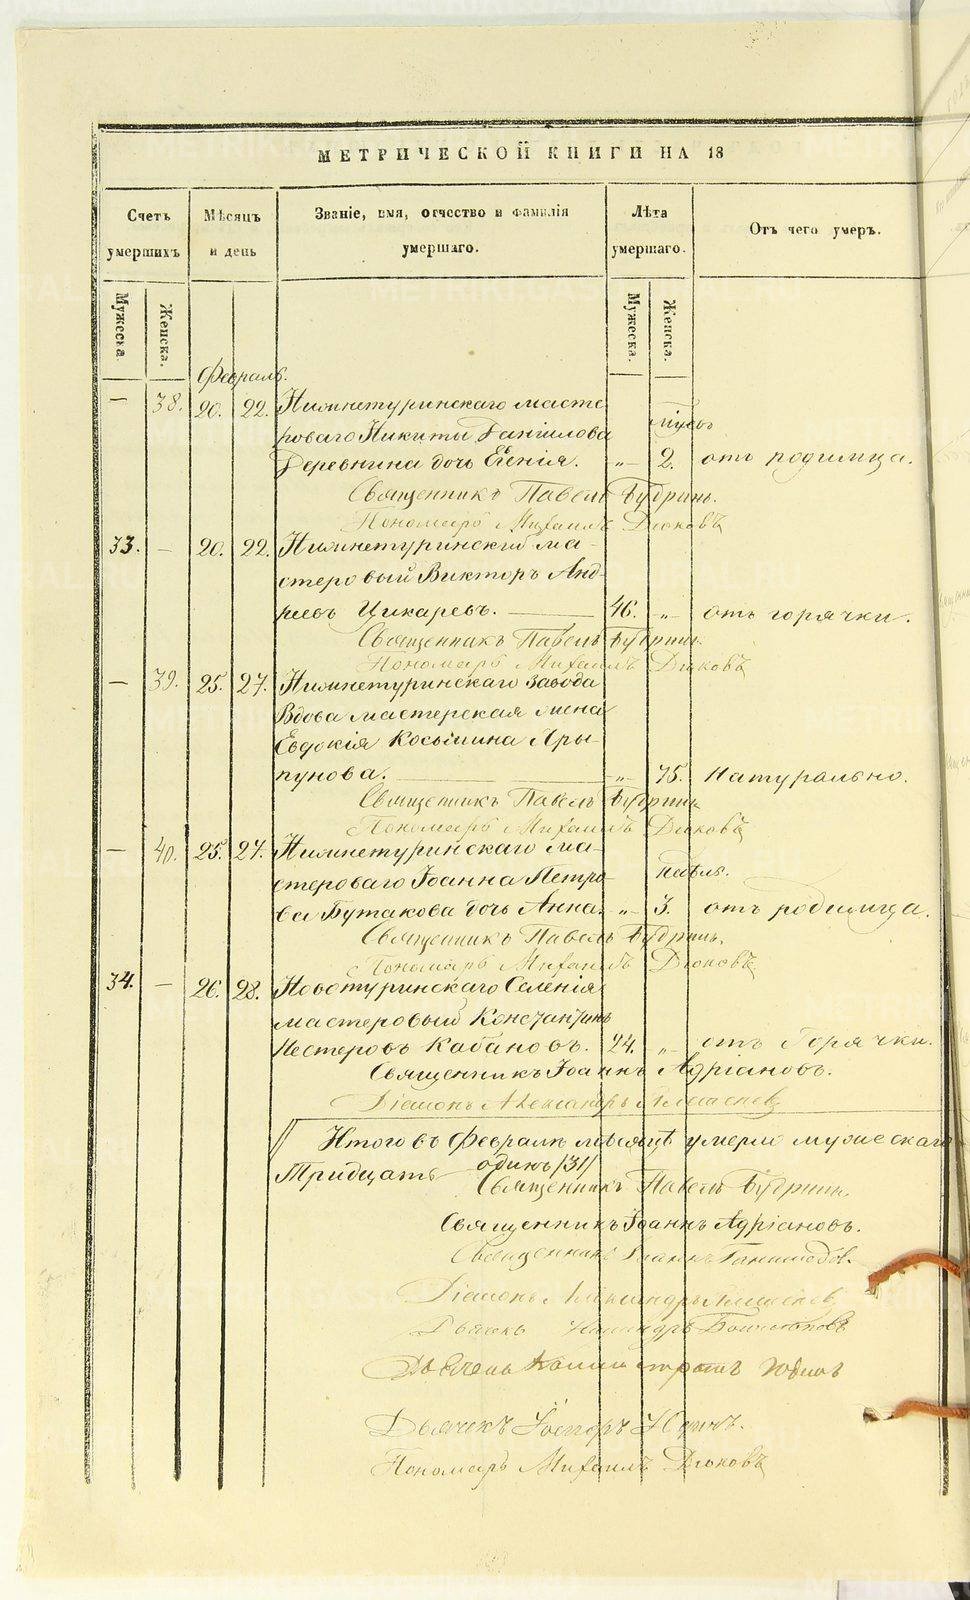 МЕТРИЧЕСКОЙ КНИГИ НА 18
Счетъ умершихъ
Мѣсяцъ и день
Званіе, имя, отчество и фамилія умершаго.
Лѣта умершаго.
Отъ чего умеръ.
Мужеска.
Женска.
Мужеска.
Женска.
Февраль.
— 38. 20. 22. Нижнетуринскаго масте
роваго Никиты Даніилова
Деревнина дочь Евгенія. „ 2. отъ родимца.
Священникъ Павелъ Будринъ.
Пономарь Михаилъ Дюковъ
33. — 20. 22. Нижнетуринскій ма-
стеровый Викторъ Анд-
реевъ Цикаревъ. 46. „ отъ горячки.
Священникъ Павелъ Будринъ.
Пономарь Михаилъ Дюковъ
— 39. 25. 27. Нижнетуринскаго завода
Вдова мастерская жена
Евдокія Косьмина Ары-
пунова. „ 75. Натурально.
Священникъ Павелъ Будринъ
Пономарь Михаилъ Дюковъ
— 40. 25. 27. Нижнетуринскаго ма-
стероваго Іоанна Петро
ва Бутакова дочь Анна. недѣль.
„ 3. отъ родимца.
Священникъ Павелъ Будринъ.
Пономарь Михаилъ Дюковъ
34. — 26. 28. Новотуринскаго Селенія
мастеровый Константинъ
Нестеровъ Кабановъ. 24. „ отъ Горячки.
Священникъ Іоаннъ Адріановъ.
Діаконъ Александръ
Итого въ Февралѣ мѣсяцѣ умерло мужескаго
Тридцать одинъ /31/
Священникъ Павелъ Будринъ.
Священникъ Іоаннъ Адріановъ.
Священникъ Іоаннъ
Діаконъ Александръ
Дьячекъ
Дьячекъ
Дьячекъ
Пономарь Михаилъ Дюковъ